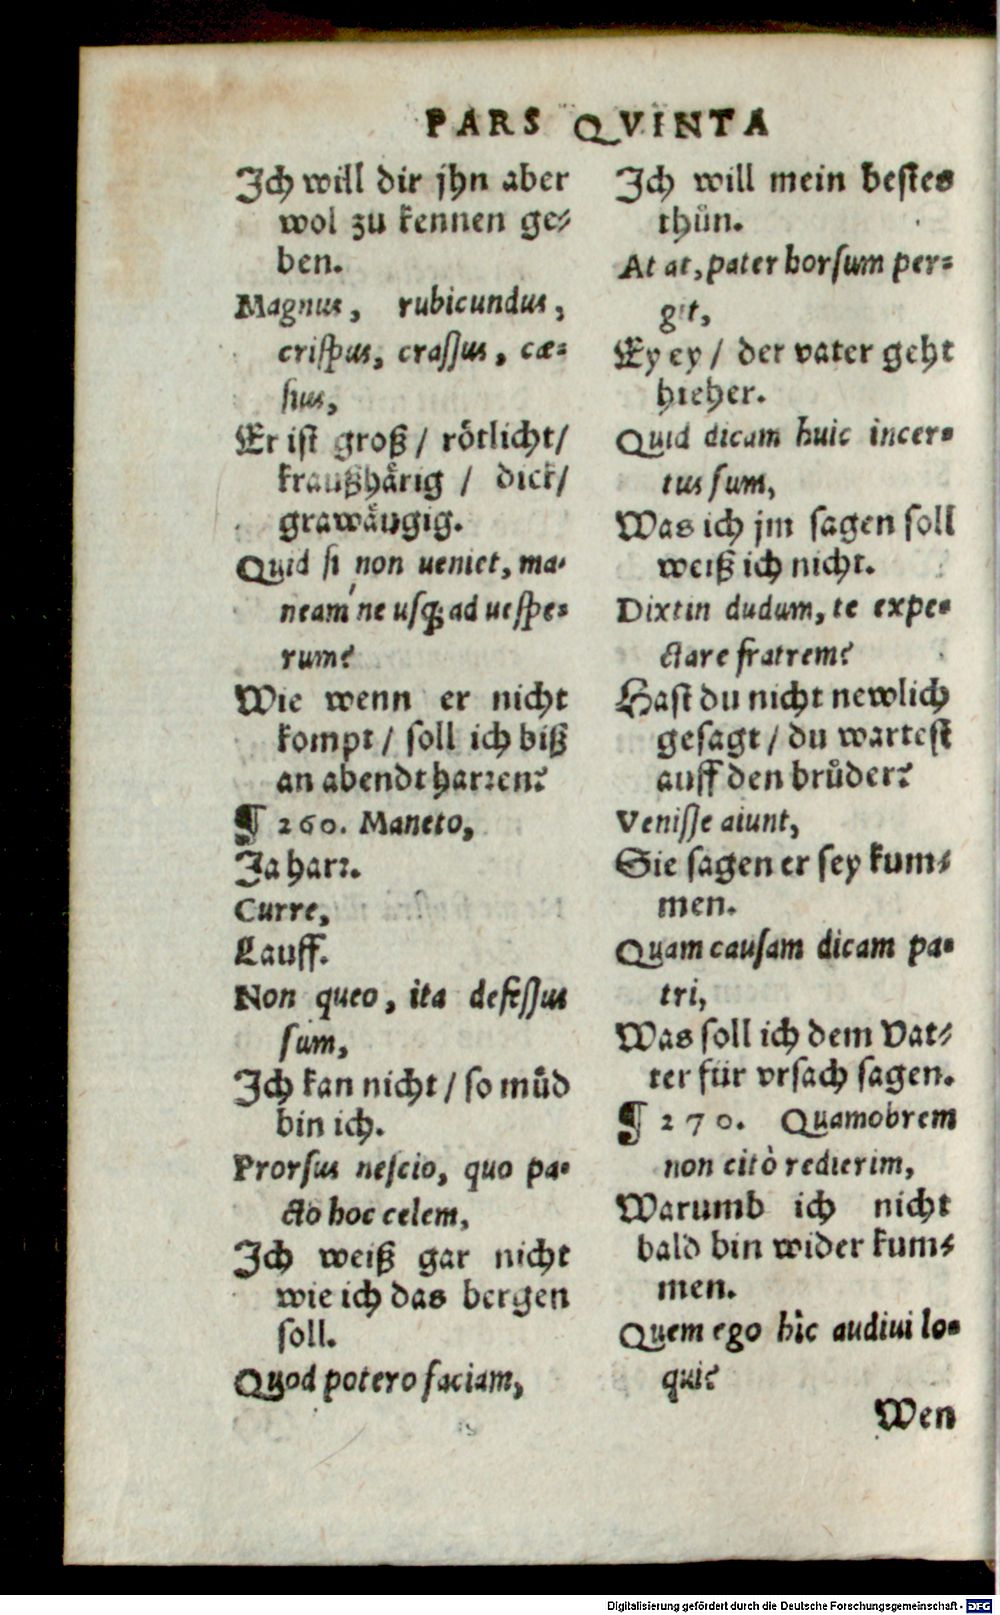 PARS QVINTA
Ich will dir jhn aber
wol zu kennen ge⸗
ben.
Magnus, rubicundus,
crispus, crassus, cæ=
sius,
Er ist groß / rötlicht/
kraußhärig / dick/
grawäugig.
Quid si non ueniet, ma-
neam'ne usq; ad uespe=
rum?
Wie wenn er nicht
kompt / soll ich biß
an abendt harren?
¶ 260. Maneto,
Ja harr.
Curre,
Lauff.
Non queo, ita defessus
sum,
Ich kan nicht / so müd
bin ich.
Prorsus nescio, quo pa=
cto hoc celem,
Ich weiß gar nicht
wie ich das bergen
soll.
Quod potero faciam,
Ich will mein bestes
thůn.
At at, pater horsum per=
git,
Ey ey / der vater geht
hieher.
Quid dicam huic incer=
tus sum,
Was ich jm sagen soll
weiß ich nicht.
Dixtin dudum, te expe=
ctare fratrem?
Hast du nicht newlich
gesagt / du wartest
auff den brůder?
Venisse aiunt,
Sie sagen er sey kum⸗
men.
Quam causam dicam pa=
tri,
Was soll ich dem Vat⸗
ter für vrsach sagen.
¶ 270. Quamobrem
non citò redierim,
Warumb ich nicht
bald bin wider kum⸗
men.
Quem ego hìc audiui lo=
qui?
Wen
Digitalisierung gefördert durch die Deutsche Forschungsgemeinschaft - DFG